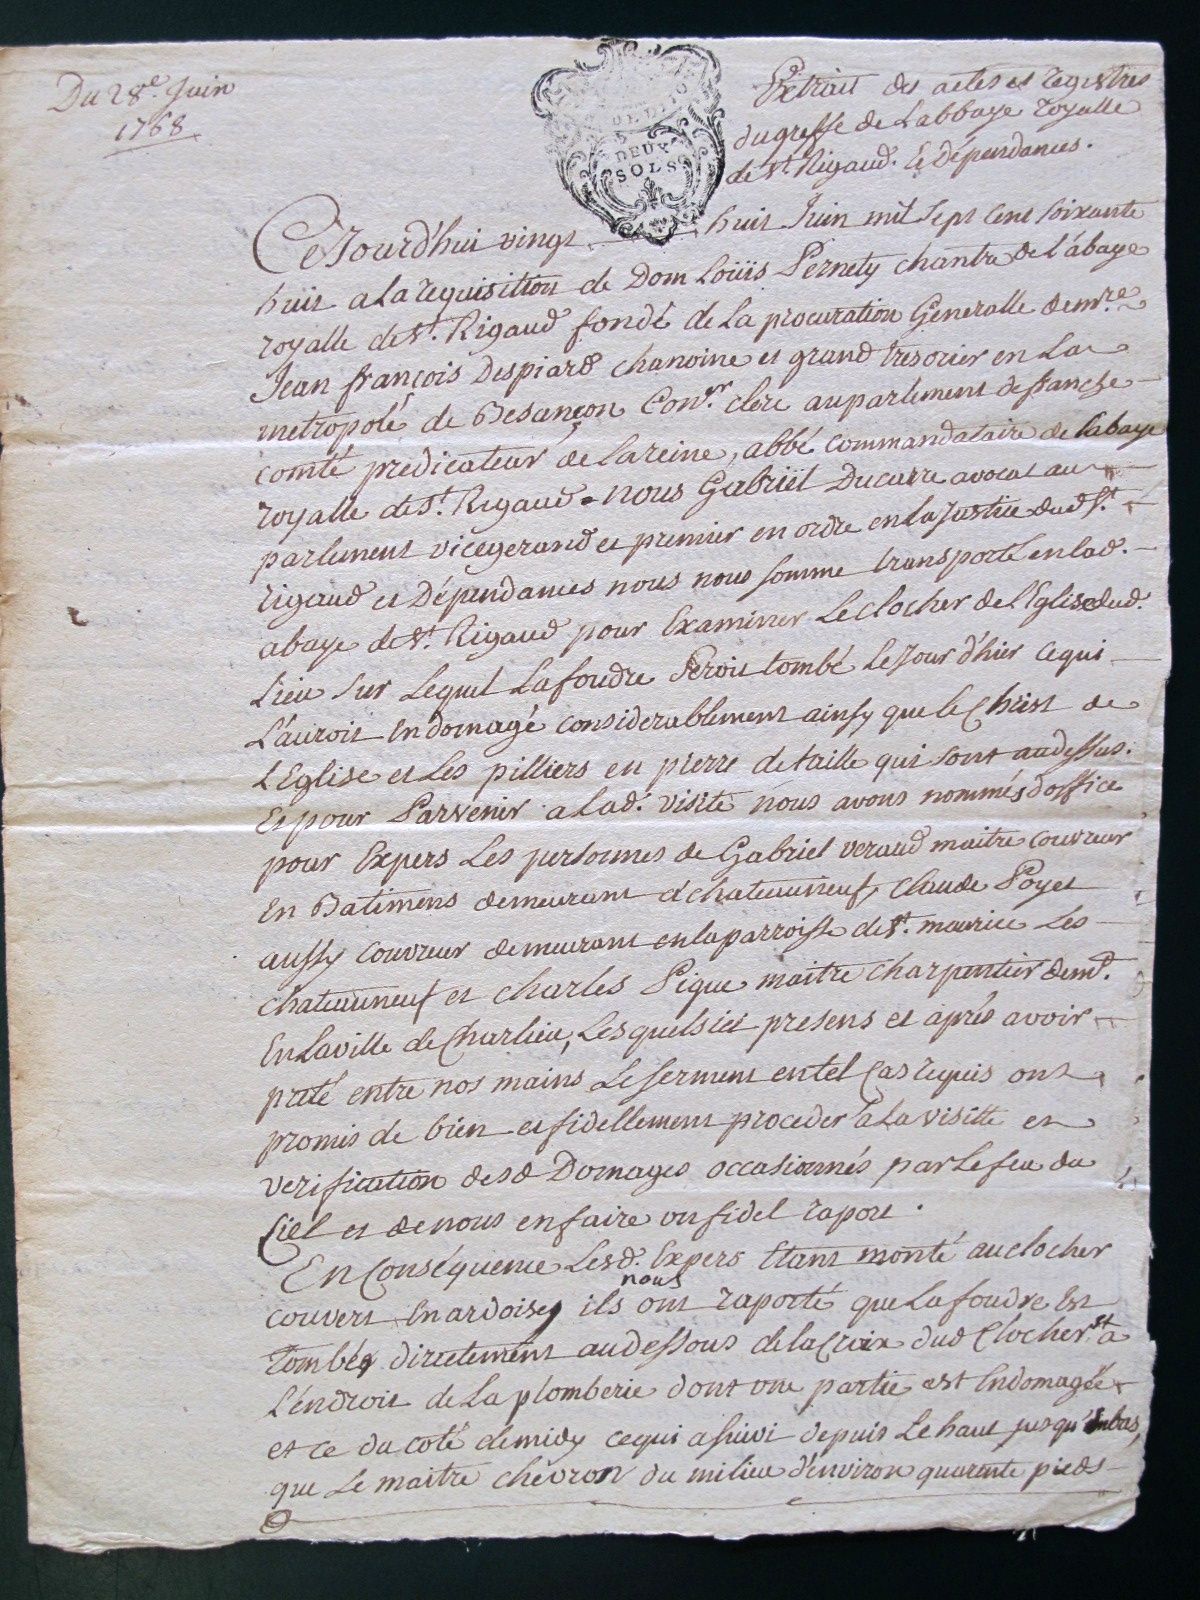 Du 28.e Juin
1768
DEUX
SOLS
Extrait des actes et registres
du greffe de Labbaye royalle
de St. Rigaud. & Dépendances.
Cejourd'hui vingt huit Juin mil sept cent soixante
huit a la requisition de Dom Loüis Pernety chantre de l'abaye
royalle de St. Rigaud fondé de la procuration Generalle de mre.
Jean françois Despiard chanoine et grand tresorier en La
metropolé de Besançon Conser. clerc au parlement de franche
comté predicateur de la reine, abbé commandataire de Labaye
royalle de St. Rigaud. nous Gabriël Ducarre avocat au
parlement vicegerand et premier en ordre en la Justice dud St.
rigaud et Dépendances nous nous somme transporté en lad.
abaye de St. Rigaud pour Examiner Le clocher de l'Eglise dud.
Lieu sur Lequel La foudre Seroit tombé Le Jour d'hier ce qui
L'auroit Endomagé considerablement ainsy que le Christ de
L'Eglise et Les pilliers en pierre de taille qui sont au dessus.
Et pour Parvenir a Lad. visite nous avons nommés d'office
pour Expers Les personnes de Gabriel veraud maitre couvreur
En Batimens demeurant à chateauneuf, Claude Poyet
aussy couvreur demeurant en la parroisse de St. maurice Les
chateauneuf et Charles Pique maitre charpentier demt.
En La ville de Charlieu, Lesquels ici presens et aprés avoir
preté entre nos mains Le serment en tel Cas requis ont
promis de bien et fidellement proceder a La visitte et
verification desd Domages occasionnés par Le feu du
Ciel et de nous en faire un fidel raport.
En Conséquence Lesd. Expers Etant monté au clocher
couvert En ardoise, ils nous ont raporté que La foudre Est
Tombée directement au dessous de la Croix dud Clocher et a
L'endroit de La plomberie dont une partie est Endomagée
et ce du coté de midy ce qui a suivi depuis Le haut jusqu'en bas,
que Le maitre chevron du milieu d'environ quarente pieds